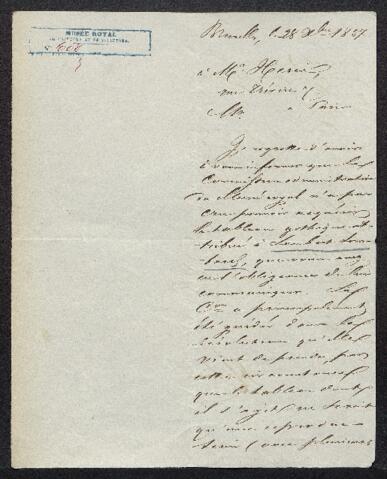 MUSÉE ROYAL
DE PEINTURE ET DE SCULPTURE
Bruxelles, le 28 Xbre 1857
à Mr
à Paris
Mr
Je regrette d'avoir
à vous informer que la
Commission administrative
du Musée royal n'a pas
cru pouvoir acquérir
le tableau gothique at-
tribué à Lambert Lom-
bard, que vous avez
eu l'obligeance de lui
communiquer. La
Con a principalement
été guidée dans la
résolution qu'elle
vient de prendre, par
cette circonstance
que le tableau dont
il s'agit ne serait
qu'une reproduc-
tion (avec plusieurs